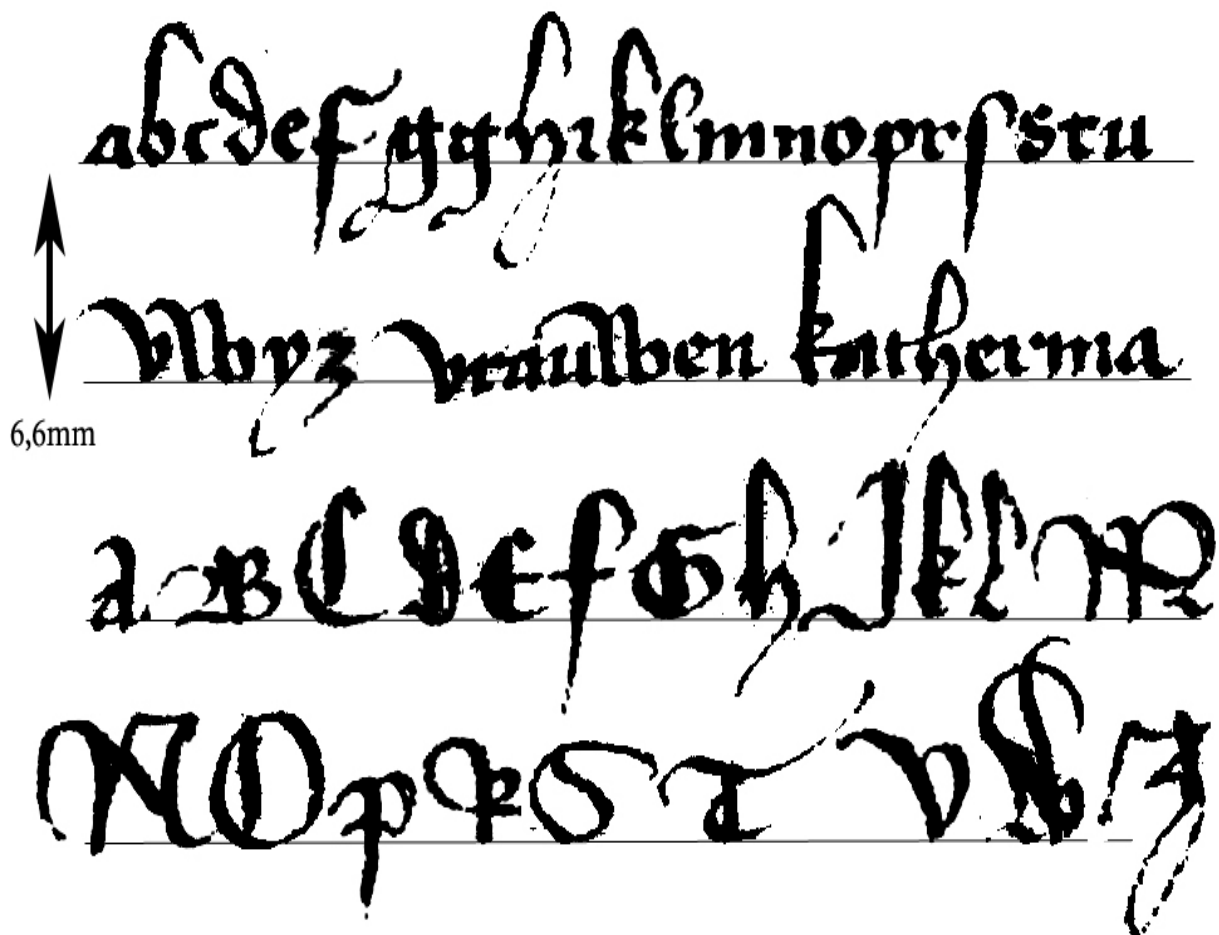 abcdefgghiklmnoprſstu
vwyz vrauwen katherina
6,6mm
ABCDEFGHJKLM
NOPRSTVWZ